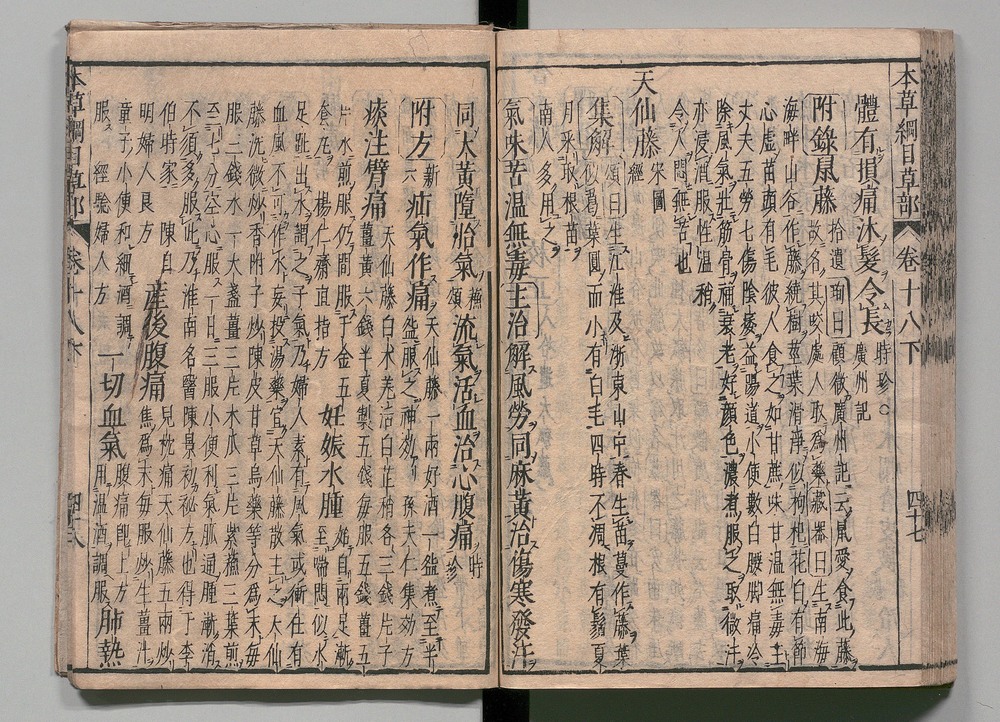 本草綱目草部 卷十八下 四十七
體有損痛沐髮令長時珍○廣州記
附錄鼠藤拾遺珣曰顧微廣州記云鼠愛食此藤
故名其咬處人取爲藥藏器曰生南海
海畔山谷作藤繞樹莖葉滑淨似枸杞花白有節
心虛苗頭有毛彼人食之如甘蔗味甘溫無毒主
丈夫五勞七傷陰痿益陽道小便數白腰脚痛冷
除風氣壯筋骨補衰老好顏色濃煮服之取微汗
亦浸酒服性溫稍
令人悶無苦也
天仙藤宋圖經
集解頌曰生江淮及浙東山中春生苗蔓作藤葉
似葛葉圓而小有白毛四時不凋根有鬚夏
月采取根苗
南人多用之
氣味苦溫無毒主治解風勞同麻黃治傷寒發汗
同大黃墮胎氣蘇頌流氣活血治心腹痛時珍
附方新六疝氣作痛天仙藤一兩好酒一盌煮至半
盌服之神效孫夫仁集效方
痰注臂痛天仙藤白朮羌活白芷梢各三錢片子
薑黃六錢半夏製五錢每服五錢薑五
片水煎服仍間服千金五
套丸楊仁齋直指方妊娠水腫始自兩足漸
至喘悶似水
足趾出水謂之子氣乃婦人素有風氣或衝任有
血風不可作水妄投湯藥宜天仙藤散主之天仙
藤洗微炒香附子炒陳皮甘草烏藥等分爲末每
服三錢水一大盞薑三片木瓜三片紫蘇三葉煎
至七分空心服一日三服小便利氣脈通腫漸消
不須多服此乃淮南名醫陳景初秘方也得于李
伯時家陳自
明婦人良方產後腹痛兒枕痛天仙藤五兩炒
焦爲末每服炒生薑汁
童子小便和細酒調
服經驗婦人方一切血氣腹痛卽上方
用溫酒調服肺熱
本草綱目草部 卷十八下 四十八